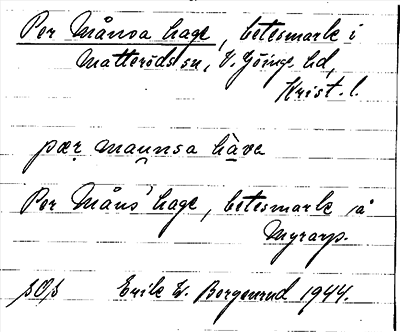 Per Månsa hage, betesmark i
Matteröds sn, V. Göinge hd,
Krist. l.
pær mau̯nsa hava
Per Måns' hage, betesmark på
Myrarp.
Erik W. Borgenrud 1944.